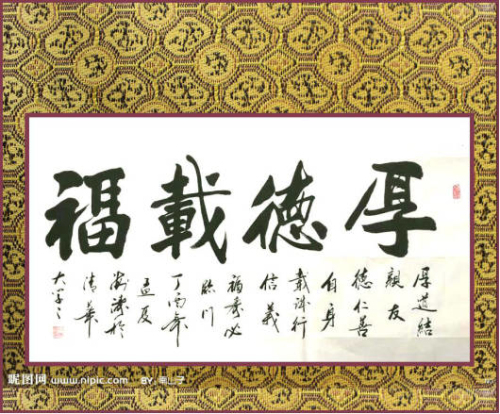 厚德載福
厚道結
親友
德仁善
自身
載誠行
信義
福壽必
臨門
丁酉年
孟夏
於
清華
大學
昵图网 www.nipic.com BY: